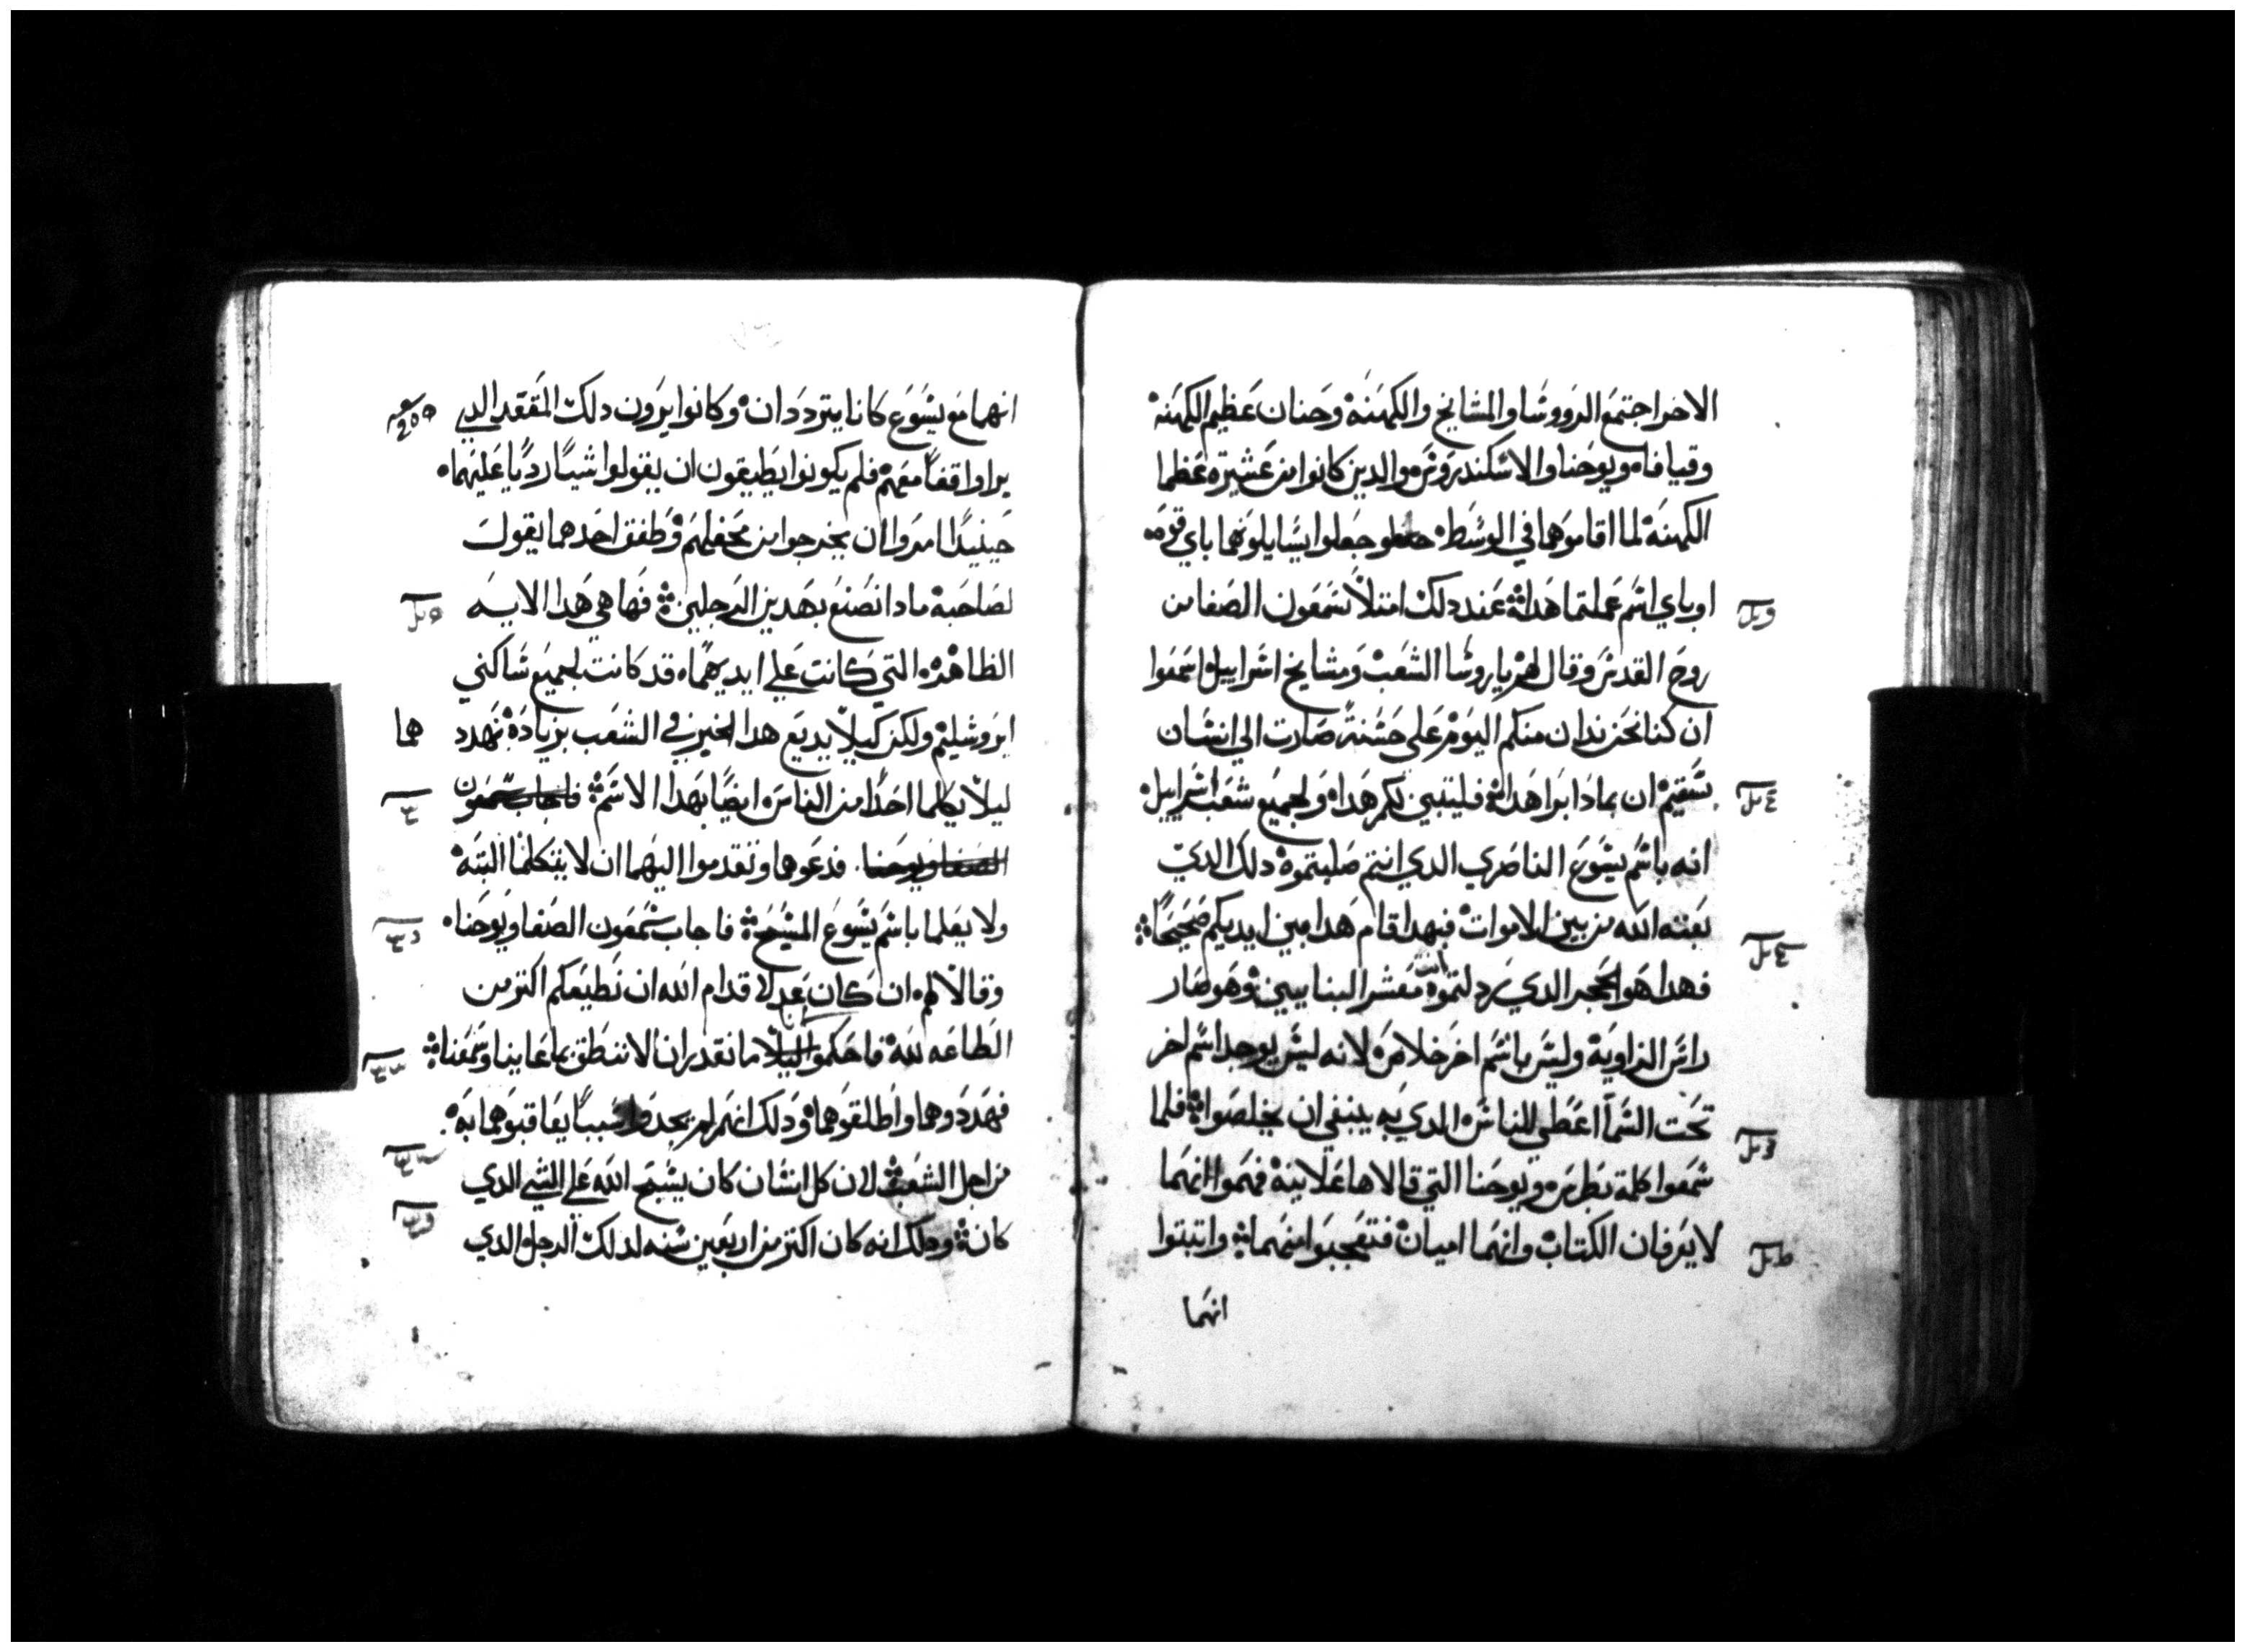 الاخر اجتمع الرووسا والمشايخ والكهنه وحنان عظيم الكهنه
وقيافا ويوحنا والاسكندروس والدين كانوا من عشيره عظما
الكهنه لما اقاموهما في الوسط جعلوا يسايلونهما باي قوه
او باي اسم عملتما هدا عند دلك امتلا سمعون الصفا من
روح القدس وقال لهم يا روسا الشعب ومشايخ اسراييل اسمعوا
ان كنا نحن ندان منكم اليوم علي حسنة صارت الي انسان
سقيم ان بمادا برا هدا فليتبين لكم هدا ولجميع شعب اسراييل
انه باسم يسوع الناصري الدي انتم صلبتموه دلك الدي
بعثه الله من بين الاموات فبهدا قام هدا بين ايديكم صحيحا
فهدا هو الحجر الدي ردلتموه انتم معشر البنايين وهو صار
راس الزاوية وليس باسم اخر خلاص لانه ليس يوجد اسم اخر
تحت السما اعطي للناس الدي به ينبغي ان يخلصوا فلما
سمعوا كلمة بطرس ويوحنا التي قالاها علانية فهموا انهما
لا يعرفان الكتاب وانهما اميان فتعجبوا منهما واتبتوا
انهما
انهما مع يسوع كانا يترددان وكانوا يرون دلك المقعد الدي
برا واقفا معهم فلم يكونوا يطيقون ان يقولوا شيا رديا عليهما
حينيدا امروا ان يخرجوا من محفلهم وطفق احدهما يقول
لصاحبه مادا نصنع بهدين الرجلين فها هي هدا الايه
الظاهره التي كانت علي ايديهما قد كانت لجميع ساكني
ايروشليم ولكن كيلا يديع هدا الخبر في الشعب بزيادة نهدد
هما
ليلا يكلما احدا من الناس ايضا بهدا الاسم فاجاب سمعون
الصفا ويوحنا فدعوهما وتقدموا اليهما ان لا يتكلما البته
ولا يعلما باسم يسوع المسيح فاجاب سمعون الصفا ويوحنا
وقالا لهم ان كان عدلا قدام الله ان نطيعكم اكتر من
الطاعه لله فاحكموا ما نقدر ان لا ننطق بما عاينا وسمعنا
فهددوهما واطلقوهما ودلك انهم لم يجدوا سببا يعاقبوهما به
من اجل الشعب لان كل انسان كان يسبح الله علي الشي الدي
كان ودلك انه كان اكتر من اربعين سنه لدلك الرجل الدي